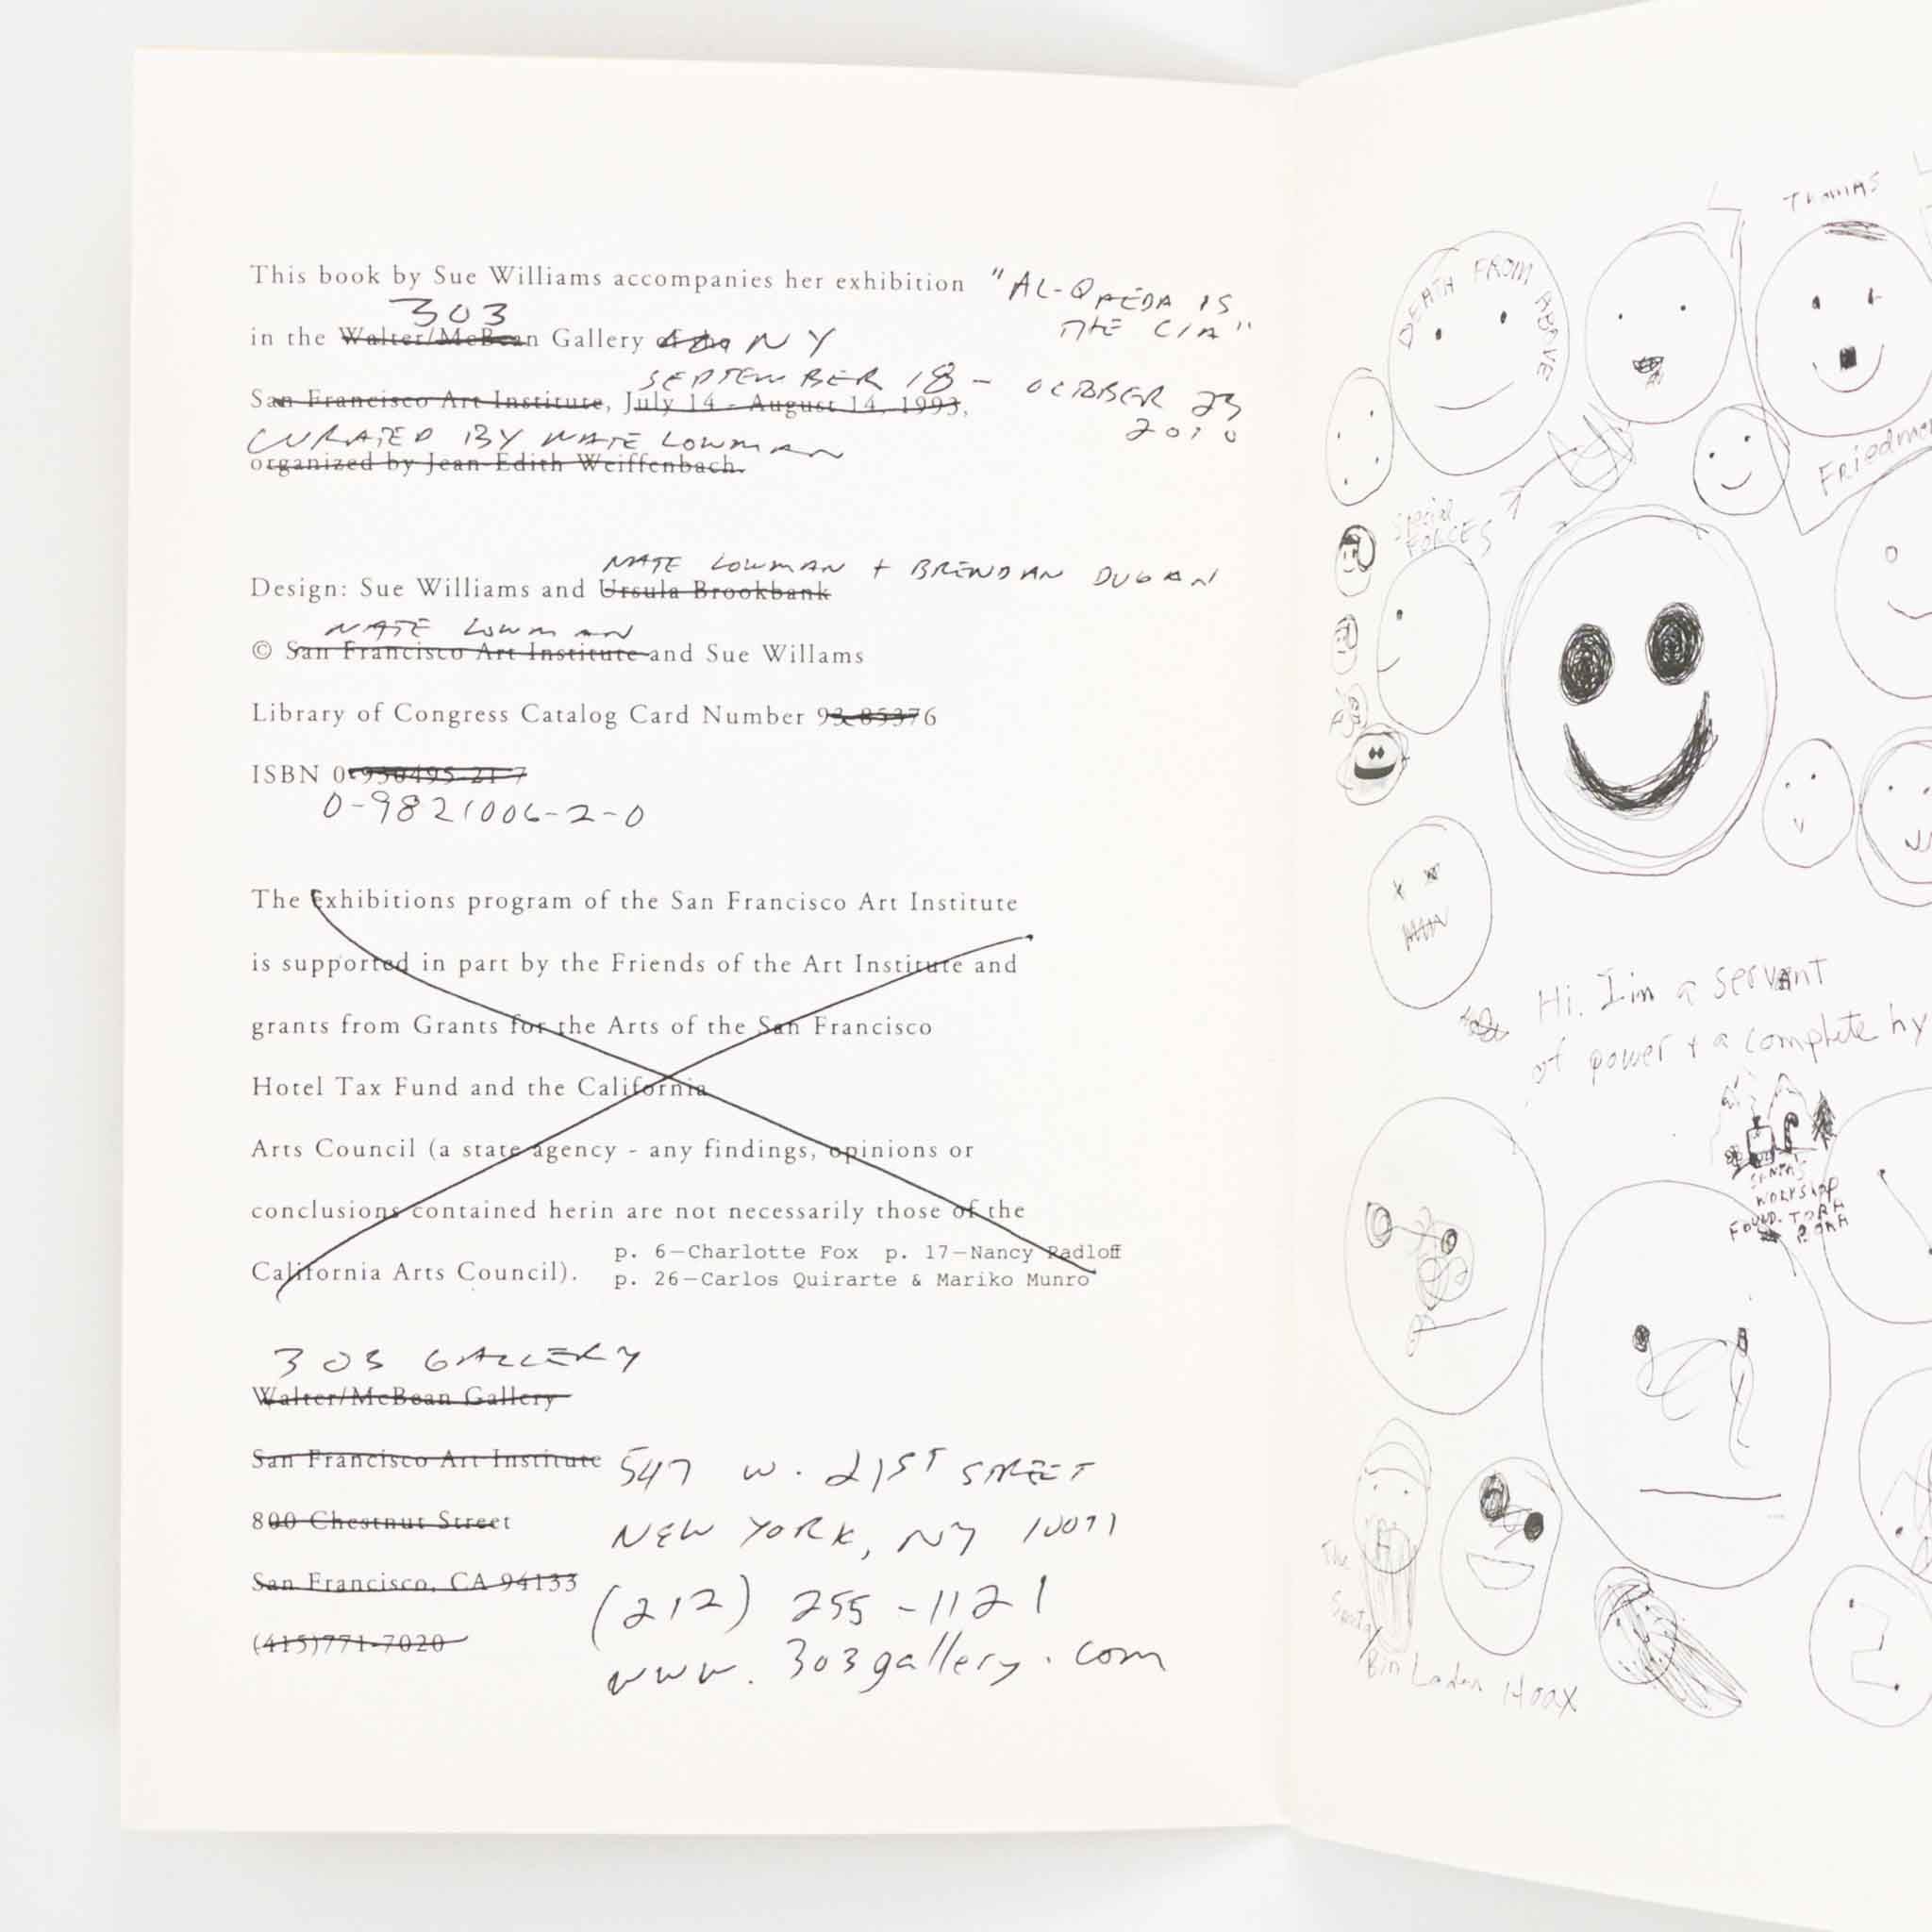 This book by Sue Williams accompanies her exhibition "AL-QAEDA IS
THE CIA"
303
in the Walter/McBean Gallery NY
SEPTEMBER 18 - OCTOBER 23
2010
San Francisco Art Institute, July 14 - August 14, 1993,
CURATED BY NATE LOWMAN
organized by Jean-Edith Weiffenbach.
NATE LOWMAN + BRENDAN DUGAN
Design: Sue Williams and Ursula Brookbank
NATE LOWMAN
© San Francisco Art Institute and Sue Willams
Library of Congress Catalog Card Number 93-85376
ISBN 0-930495-21-7
0-9821006-2-0
The exhibitions program of the San Francisco Art Institute
is supported in part by the Friends of the Art Institute and
grants from Grants for the Arts of the San Francisco
Hotel Tax Fund and the California
Arts Council (a state agency - any findings, opinions or
conclusions contained herin are not necessarily those of the
California Arts Council).
p. 6—Charlotte Fox p. 17—Nancy Radloff
p. 26—Carlos Quirarte & Mariko Munro
303 GALLERY
Walter/McBean Gallery
San Francisco Art Institute
547 W. 21ST STREET
800 Chestnut Street
NEW YORK, NY 10011
San Francisco, CA 94133
(212) 255-1121
(415)771-7020
www.303gallery.com
Thomas
DEATH FROM ABOVE
Special
FORCES
Hi. I'm a servant
of power + a complete hy
SANTAS
WORKSHOP
FOUND. TORA
BORA
The
Bin Laden Hoax